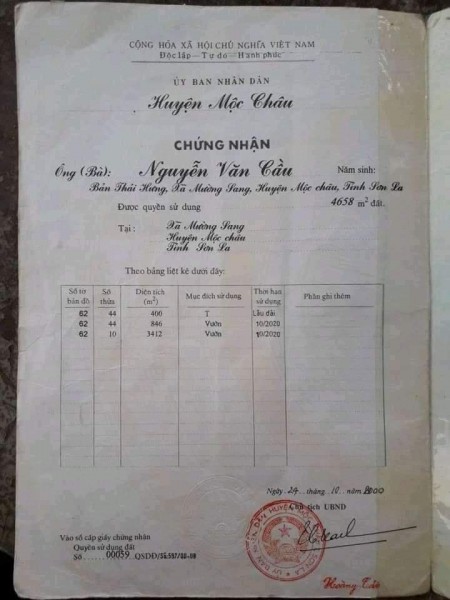 CỘNG HÒA XÃ HỘI CHỦ NGHĨA VIỆT NAM
Độc lập — Tự do — Hạnh phúc
ỦY BAN NHÂN DÂN
Huyện Mộc Châu
CHỨNG NHẬN
Ông (Bà): Nguyễn Văn Cầu Năm sinh:
Bản Thái Hưng, Xã Mường Sang, Huyện Mộc châu, Tỉnh Sơn La
Được quyền sử dụng 4658 m² đất.
Tại : Xã Mường Sang
Huyện Mộc châu
Tỉnh Sơn La
Theo bảng liệt kê dưới đây:
Số tờ bản đồ Số thửa Diện tích (m²) Mục đích sử dụng Thời hạn sử dụng Phần ghi thêm
62 44 400 T Lâu dài
62 44 846 Vườn 10/2020
62 10 3412 Vườn 10/2020
Ngày 24 tháng 10 năm 2000
Chủ tịch UBND
Vào sổ cấp giấy chứng nhận
Quyền sử dụng đất
Số 00059 QSDĐ/